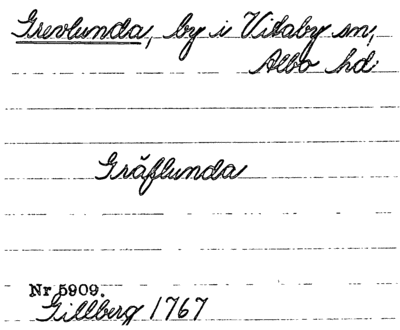 Grevlunda, by i Vitaby sn,
Albo hd.
Gräflunda
Nr 5909.
Gillberg 1767